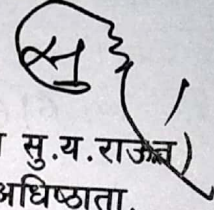 सु.य.राऊत)
अधिष्ठाता